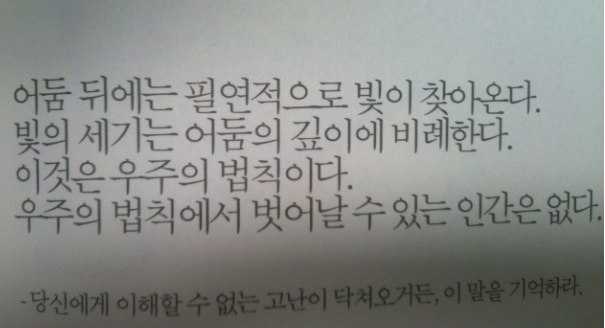 어둠 뒤에는 필연적으로 빛이 찾아온다.
빛의 세기는 어둠의 깊이에 비례한다.
이것은 우주의 법칙이다.
우주의 법칙에서 벗어날 수 있는 인간은 없다.
-당신에게 이해할 수 없는 고난이 닥쳐오거든, 이 말을 기억하라.